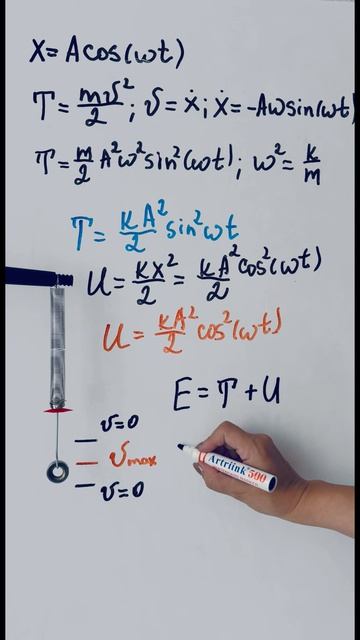 X = A cos(ωt)
T = mυ²/2 ; υ = ẋ ; ẋ = -Aω sin(ωt)
T = m/2 A²ω² sin²(ωt) ; ω² = k/m
T = kA²/2 sin² ωt
U = kx²/2 = kA²/2 cos²(ωt)
U = kA²/2 cos²(ωt)
E = T + U
υ=0
υmax
υ=0
Artriink 500